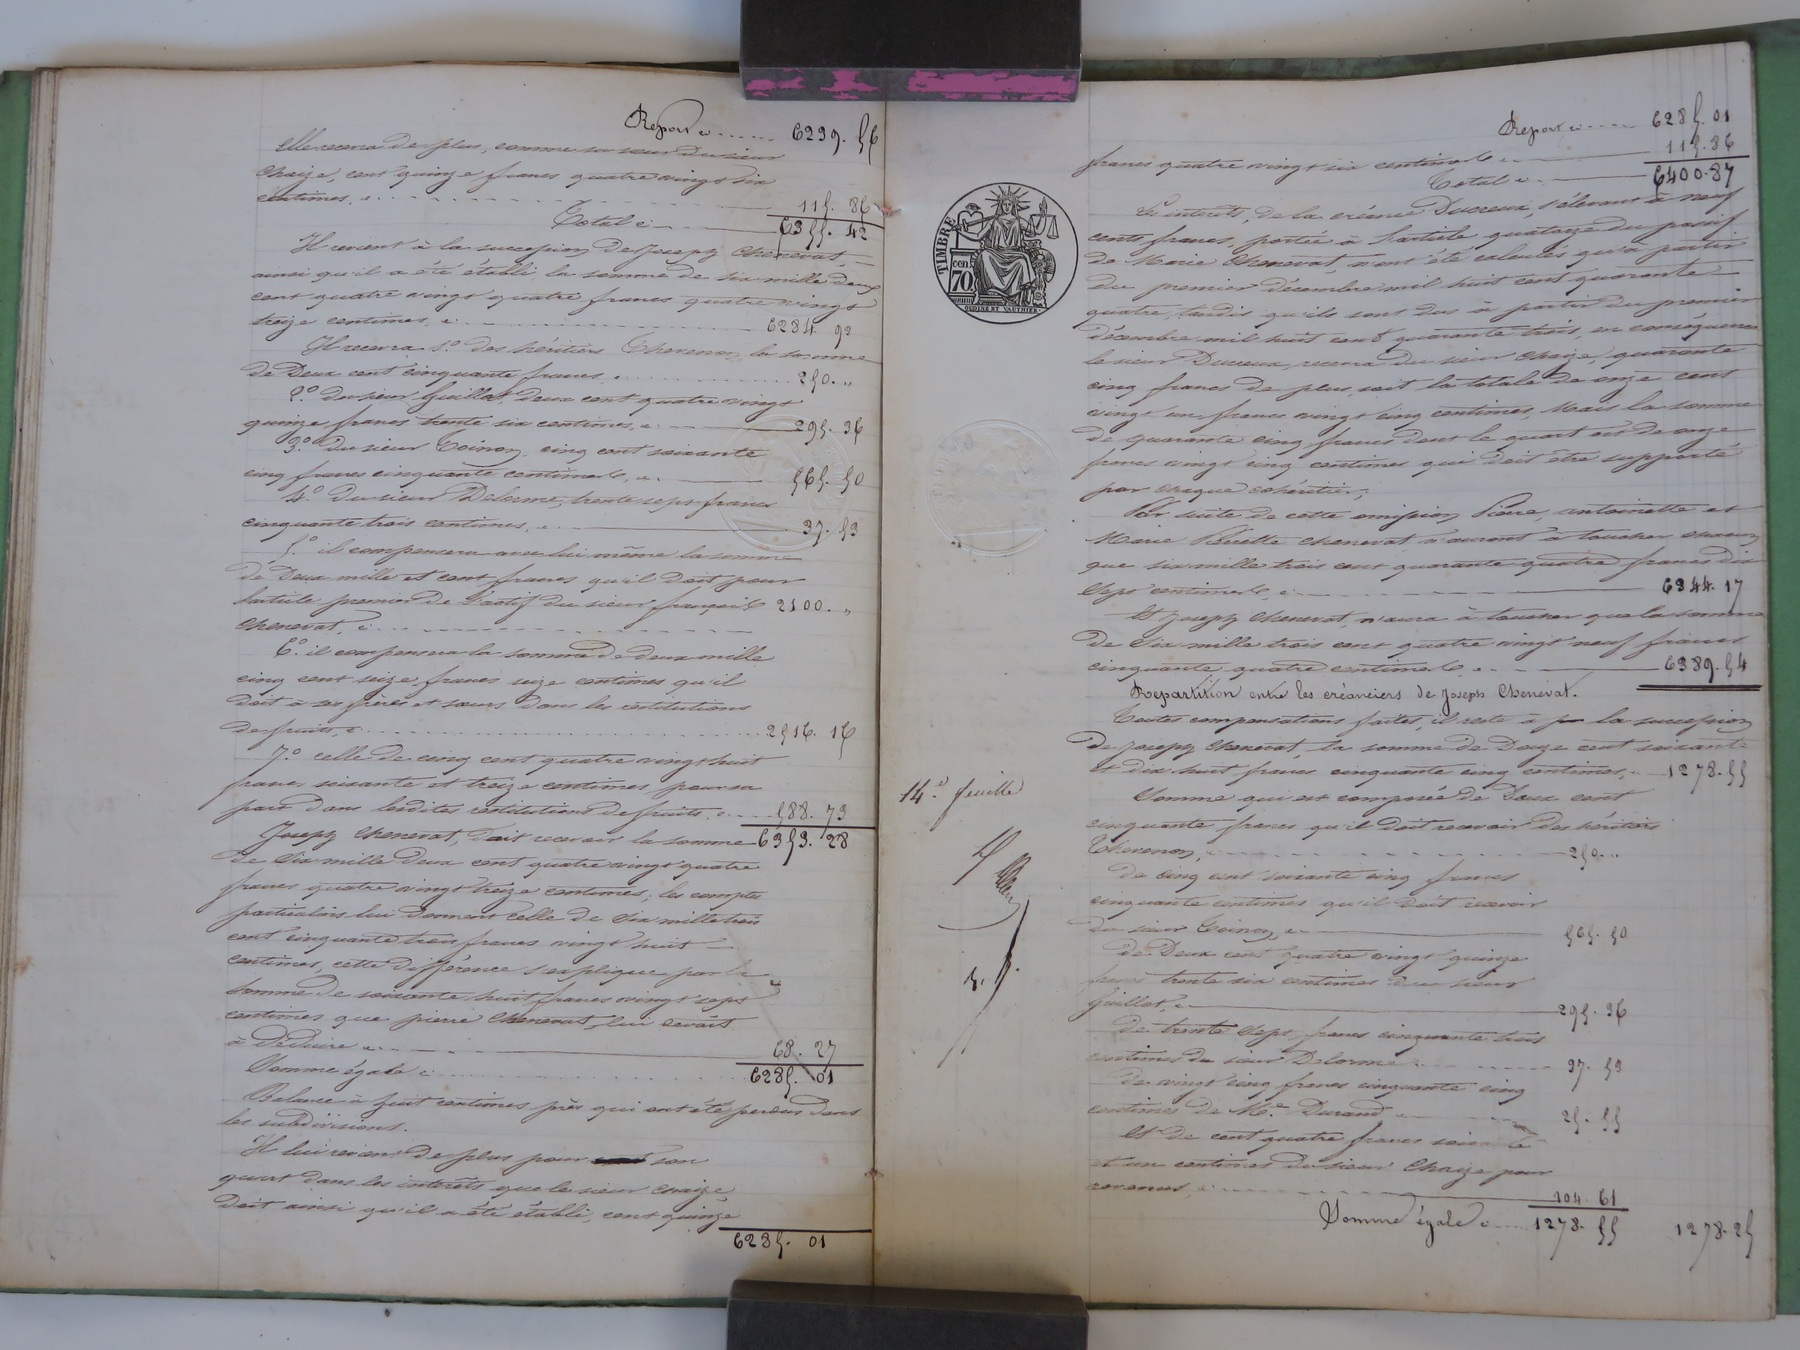 Report 6239. 56
Elle recevra de plus, comme sa sœur du sieur
Chaize, cent quinze francs quatre vingt six
centimes, 115. 86
Total 6355. 42
Il revient à la succession de Joseph Chenevat
ainsi qu'il a été établi la somme de six mille deux
cent quatre vingt quatre francs quatre vingt
treize centimes, 6284. 93
Il recevra 1.o des héritiers Thevenon, la somme
de Deux cent cinquante francs, 250. "
2.o du sieur Guillot, deux cent quatre vingt
quinze francs trente six centimes, 295. 36
3.o Du sieur Coinon, cinq cent soixante
cinq francs cinquante centimes, 565. 50
4.o Du sieur Delorme, trente sept francs
cinquante trois centimes, 37. 53
5.o il compensera avec lui même la somme
de Deux mille et cent francs qu'il doit pour
l'article premier de l'actif du sieur françois 2100. "
Chenevat,
6.o il compensera la somme de deux mille
cinq cent seize francs seize centimes qu'il
doit à ses frères et sœurs dans les restitutions
de fruits, 2516. 16
7.o celle de cinq cent quatre vingt huit
francs soixante et treize centimes pour sa
part dans lesdites restitutions de fruits, 588. 73
Joseph Chenevat, doit recevoir la somme 6353. 28
de six mille Deux cent quatre vingt quatre
francs quatre vingt treize centimes; les comptes
particuliers lui donnent celle de six mille trois
cent cinquante trois francs vingt huit
centimes, cette différence s'explique par la
somme de soixante huit francs vingt sept
centimes que pierre Chenevat, lui devait
à déduire 68. 27
Somme égale 6285. 01
Balance à huit centimes près qui ont été perdus dans
les subdivisions.
Il lui revient de plus pour son
quart dans les intérêts que le sieur Chaize,
doit ainsi qu'il a été établi, cent quinze
6285. 01
Report 6285. 01
francs quatre vingt six centimes 115. 86
Total 6400. 87
Les intérêts de la créance Ducreux, s'élevant à neuf
cents francs, portée à l'article quatorze du passif
de Marie Chenevat, n'ont été calculés qu'à partir
du premier décembre mil huit cent quarante
quatre, tandis qu'ils sont dus à partir du premier
décembre mil huit cent quarante trois, en conséquence
le sieur Ducreux, recevra du sieur Chaize, quarante
cinq francs de plus, soit la totale de onze cent
vingt un francs vingt cinq centimes, Mais la somme
de quarante cinq francs dont le quart est de onze
francs vingt cinq centimes qui doit être supporté
par chaque cohéritier,
Par suite de cette omission Pierre, antoinette et
Marie Chenevat n'auront à toucher chacun
que six mille trois cent quarante quatre francs dix
sept centimes, 6344. 17
Et Joseph Chenevat, n'aura à toucher que la somme
de six mille trois cent quatre vingt neuf francs
cinquante quatre centimes, 6389. 54
Repartition entre les créanciers de Joseph Chenevat.
Toutes compensations faites, il reste à la succession
de Joseph Chenevat, la somme de Douze cent soixante
et dix huit francs cinquante cinq centimes, 1278. 55
Somme qui est composée de Deux cent
cinquante francs qu'il doit recevoir des héritiers
Thevenon, 250. "
De cinq cent soixante cinq francs
cinquante centimes qu'il doit recevoir
du sieur Coinon, 565. 50
De Deux cent quatre vingt quinze
francs trente six centimes du sieur
Guillot, 295. 36
De trente sept francs cinquante trois
centimes du sieur Delorme 37. 53
De vingt cinq francs cinquante cinq
centimes de M.e Durand 25. 55
Et de cent quatre francs soixante
et un centimes du sieur Chaize pour
revenus, 104. 61
Somme égale 1278. 55 1278. 25
TIMBRE
cen.
70
OUDINE ET VAUTHIER
14.e feuille